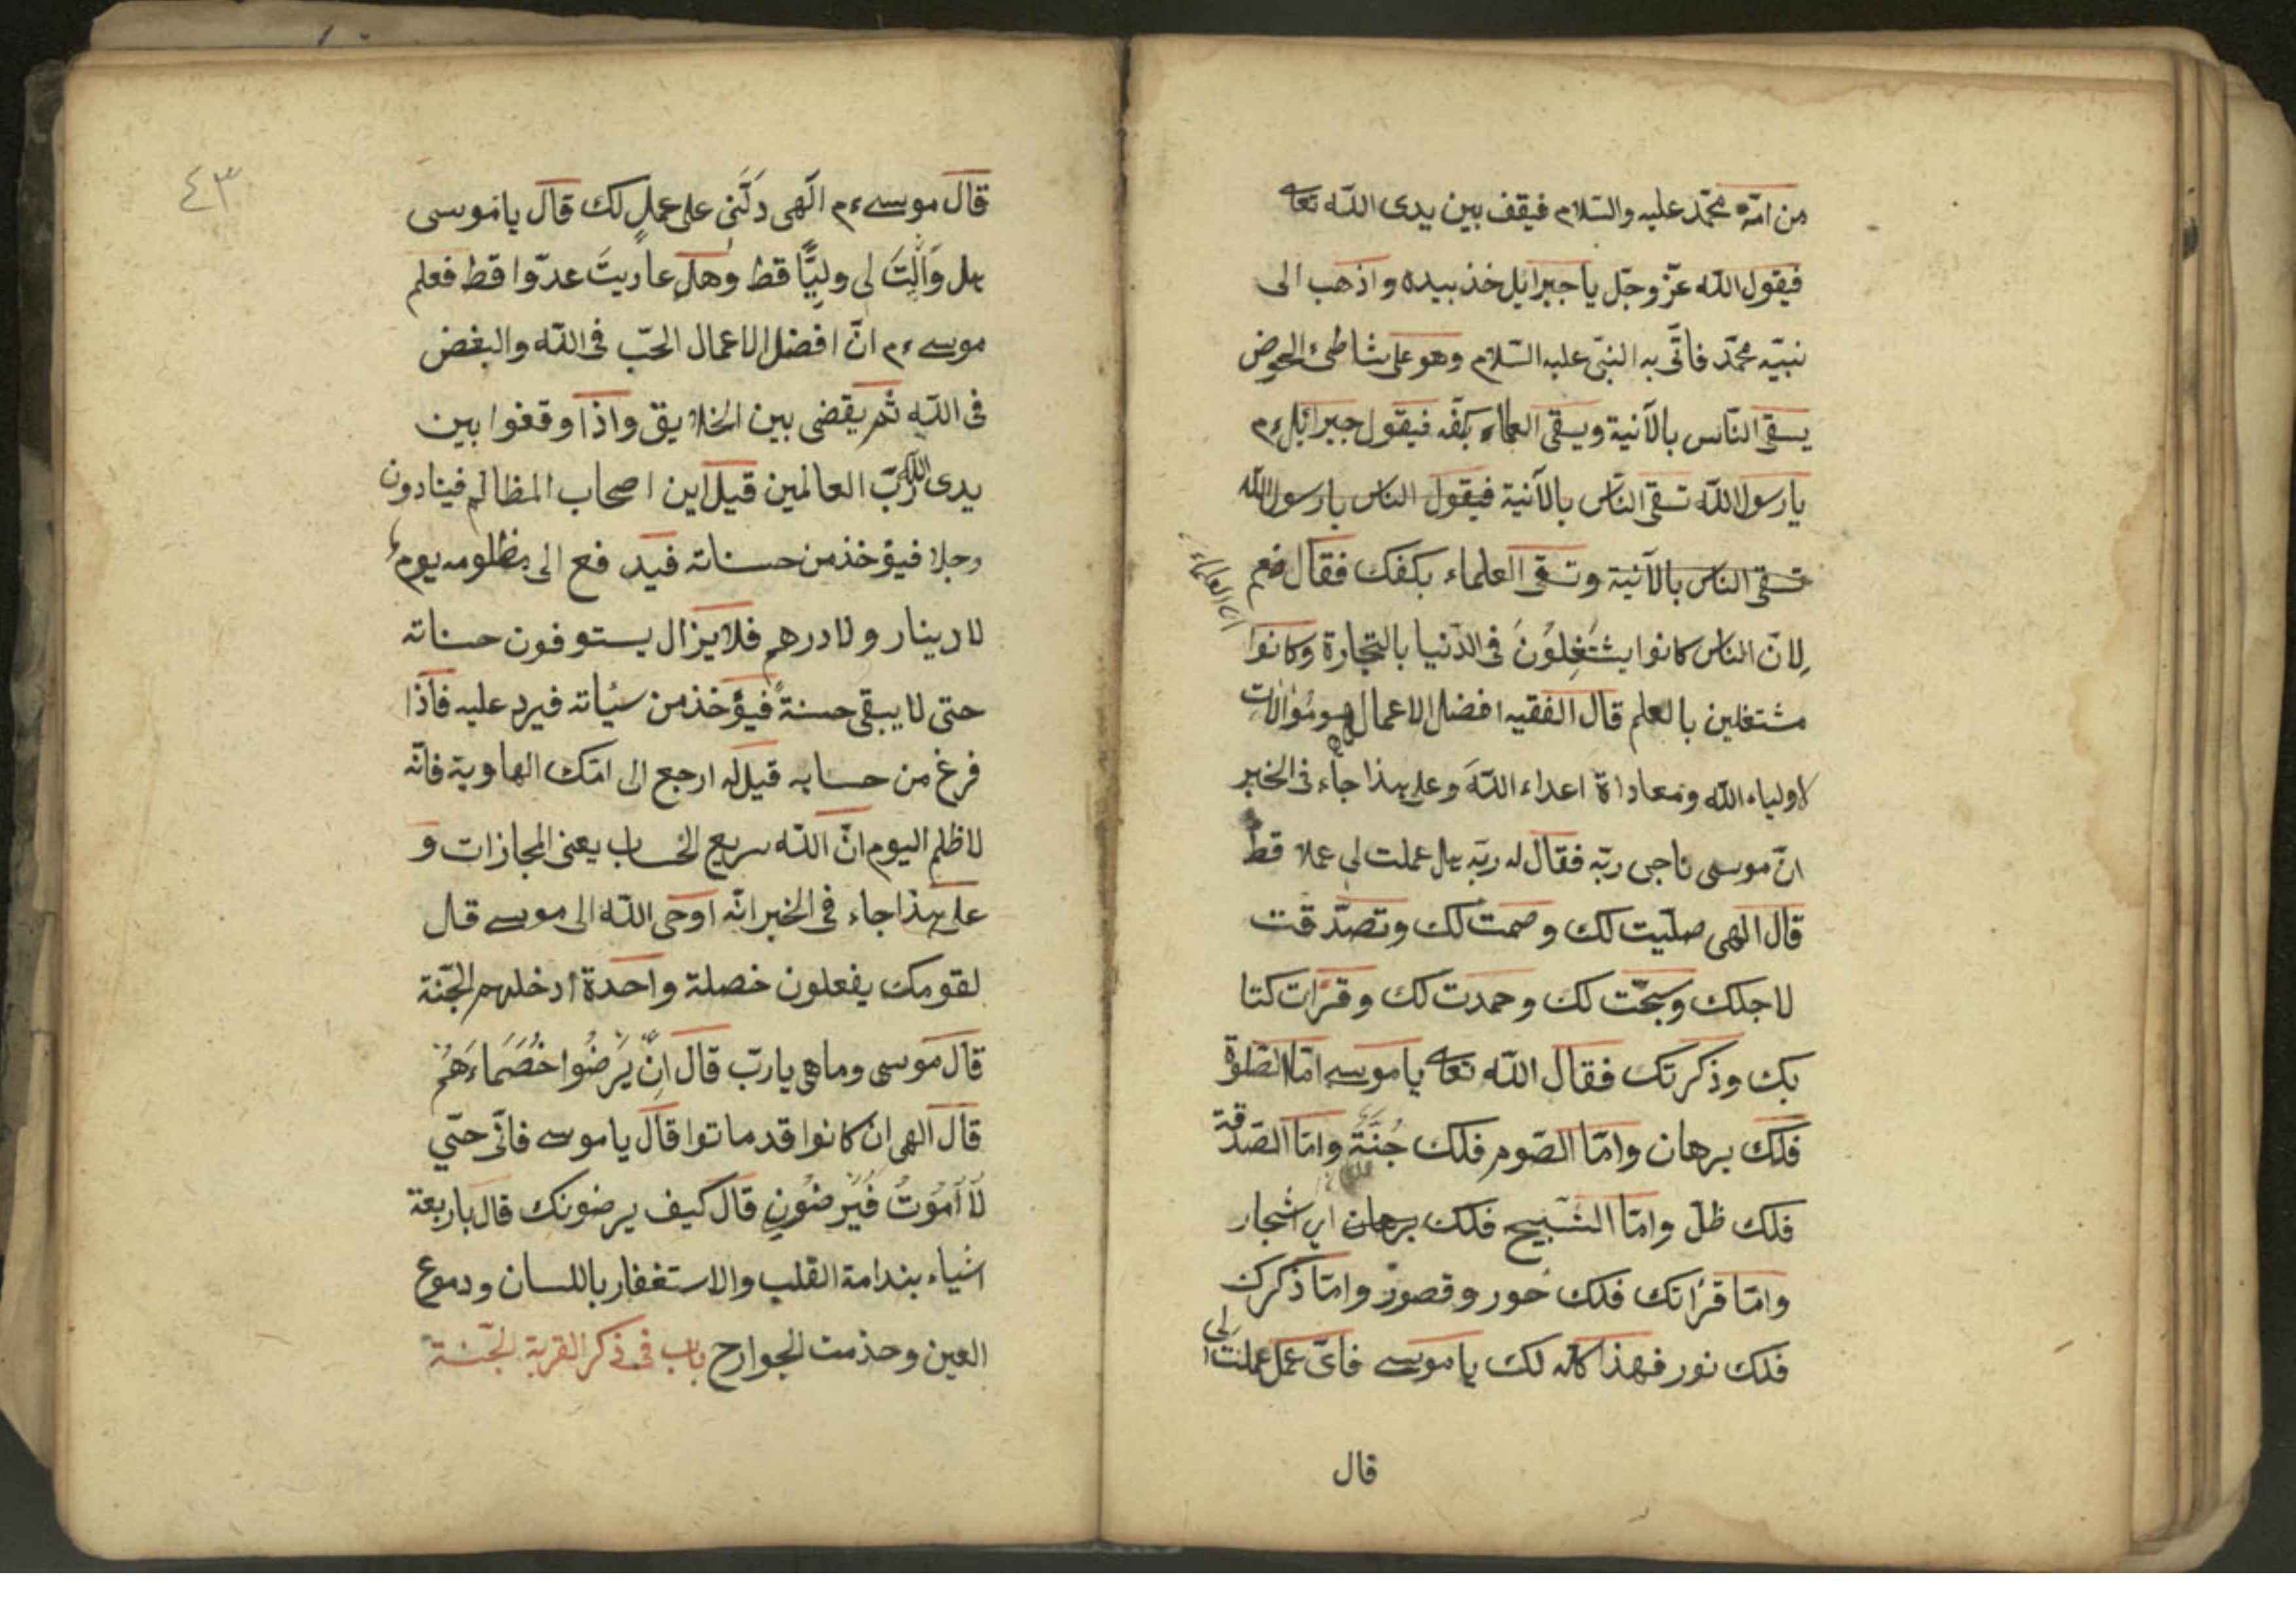 من امّة محمّد عليه والسّلام فيقف بين يدى اللّه تعا
فيقول اللّه عزّ وجلّ يا جبرائيل خذ بيده واذهب الى
نبيّه محمّد فاتّى به النبىّ عليه السّلام وهو على شاطئ الحوض
يسقى النّاس بالآنية ويسقى العلماء بكفّه فيقول جبرائيل ءم
يا رسول اللّه تسقى النّاس بالآنية فيقول الناس يا رسول اللّه
تسقى الناس بالآنية وتسقى العلماء بكفك فقال نعم
لانّ الناس كانوا يشتغلون فى الدّنيا بالتجارة وكانوا
اى العلماء
مشتغلين بالعلم قال الفقيه افضل الاعمال هو موالات
لاولياء اللّه ومعاداة اعداء اللّه وعلى هذا جاء فى الخبر
انّ موسى ناجى ربّه فقال له ربّه هل عملت لى عملا قطّ
قال الهى صلّيت لك وصمت لك وتصدّقت
لاجلك وسبّحت لك وحمدت لك وقرات كتا
بك وذكرتك فقال اللّه تعا يا موسى امّا الصّلوة
فلك برهان وامّا الصّوم فلك جُنّة وامّا الصّدقة
فلك ظلّ وامّا التّسبيح فلك برهان اى اشجار
وامّا قرأتك فلك حور وقصور وامّا ذكرك
فلك نور فهذا كله لك يا موسى فاىّ عمل عملت لى
قال
٤٣
قال موسى ءم الٓهى دَلّنى على عملٍ لك قال يا موسى
هل وَالَيتَ لى وليًّا قط وهل عاديتَ عدوّا قط فعلم
موسى ءم انّ افضل الاعمال الحبّ فى اللّه والبغض
فى اللّه ثم يقضى بين الخلايق واذا وقفوا بين
يدى اللّه ربّ العالمين قيل اين اصحاب المظالم فينادون
رجلا فيؤخذ من حسناته فيد فع الى مظلومه يوم
لا دينار ولا درهم فلا يزال يستوفون حسناته
حتى لا يبقى حسنةً فيؤخذ من سئاته فيرد عليه فاذا
فرغ من حسابه قيل له ارجع الى امّك الهاوية فانّه
لا ظلم اليوم انّ اللّه سريع الحساب يعنى المجازات و
على هذا جاء فى الخبر انّه اوحى اللّه الى موسى قال
لقومك يفعلون خصلة واحدة ادخلهم الجنّة
قال موسى وما هى يا ربّ قال انْ يَرضُوا خُصَمَاءَهُمْ
قال الهى ان كانوا قد ماتوا قال يا موسى فانّى حتّى
لَا اَمُوتُ فَيَرضُونِ قال كيف يرضونك قال باربعة
اشياء بندامة القلب والاستغفار باللسان ودموع
العين وخذمت الجوارح باب فى ذكر القربة الجنّة